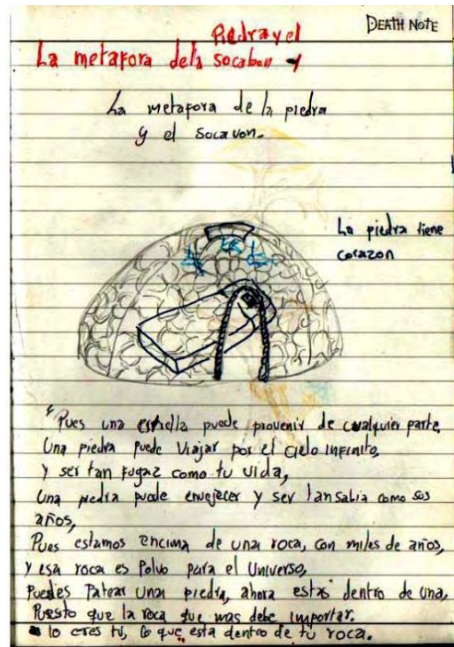 DEATH NOTE
Piedra y el
La metafora de la socabon
La metafora de la piedra
y el socavon.
La piedra tiene
corazon
"Pues una estrella puede provenir de cualquier parte,
Una piedra puede viajar por el cielo infinito,
y ser tan fugaz como tu vida,
Una piedra puede envejecer y ser tan sabia como sus
años,
Pues estamos encima de una roca, con miles de años,
y esa roca es Polvo para el Universo,
Puedes Patear una piedra, ahora estas dentro de una,
Puesto que la roca que mas debe importar.
lo eres tú, lo que esta dentro de tu roca.